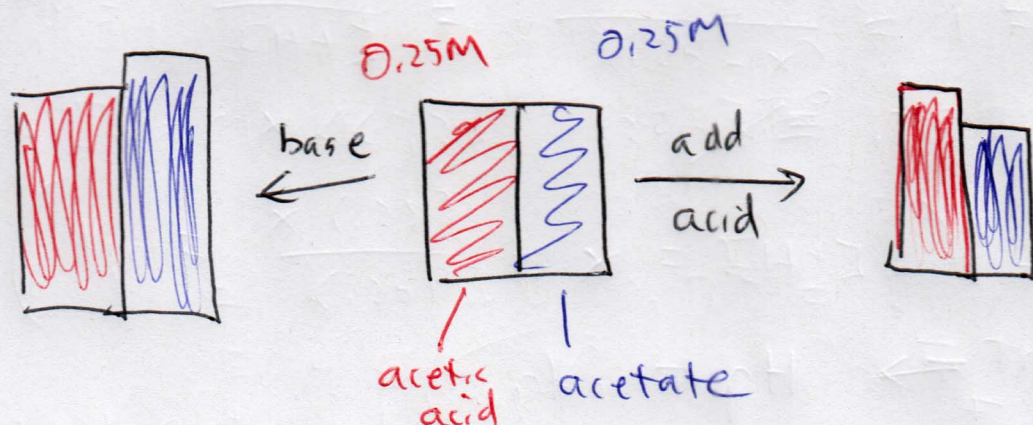 0.25M
0.25M
base
add
acid
acetic
acid
acetate